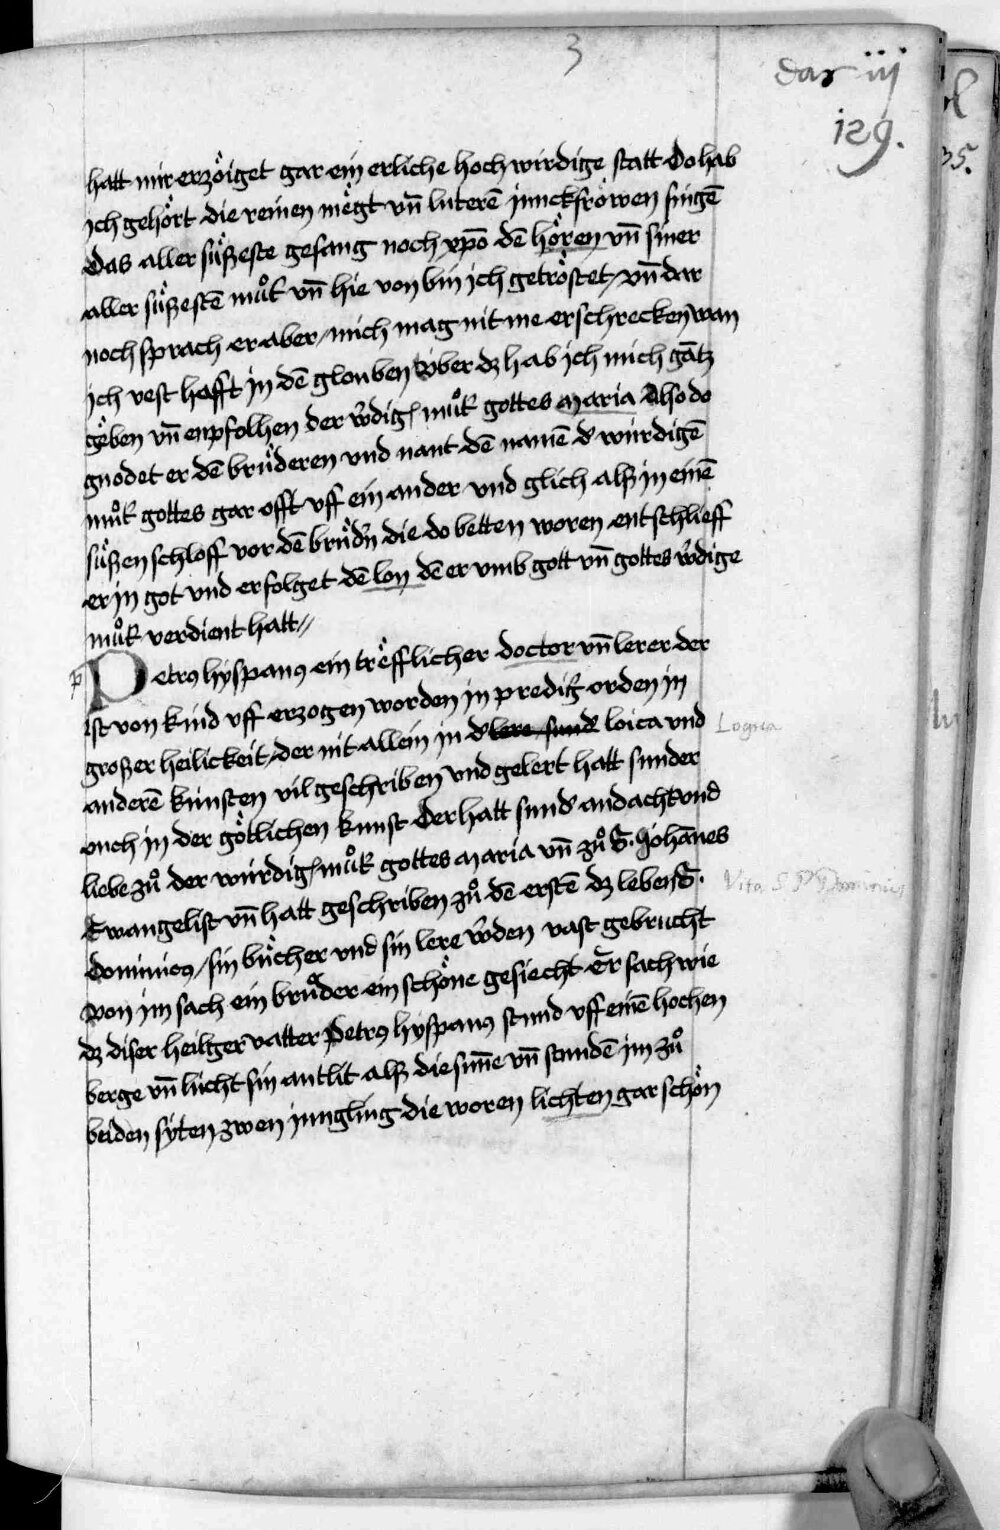 3
das iij
129.
hatt mir erzöiget gar ein erliche hochwirdige statt Do hab
ich gehört die reinen mëgt vn̄ luterē junckfröwen singē
Das aller süßeste gesang noch xpō dē hören vn̄ siner
aller süßestē muͦt͛ vn̄ hie von bin ich getröstet / vn̄ dar
noch sprach er aber / mich mag nit me erschrecken wan
ich vest hafft in dē glouben Über dz hab ich mich gātz
gëben vn̄ enpfolhen der w͛dig͛ muͦt͛ gottes maria Also do
gnodet er dē brüderen vnd nant dē namē d͛ würdigē
muͦt͛ gottes gar offt vff ein ander vnd glich alß in einē
süßen schloff vor dē brüd͛n die do betten woren entschlieff
er in got vnd erfolget dē lon dē er vmb gott vn̄ gottes w͛dige
muͦt͛ verdient hatt //
p Petrꝰ hyspanꝰ ein trëfflicher doctor vn̄ lerer der
ist von kind vff erzogen worden in predig͛ orden in
großer heilickeit / der nit allein in d͛ lere sund͛ loica vnd
Logica
anderē künsten vil geschriben vnd gelert hatt sunder
ouch in der götlichen kunst Der hatt sund͛ andacht vnd
liebe zuͦ der würdig͛ muͦt͛ gottes maria vn̄ zuͦ S. Johānes
Ewangelist vn̄ hatt geschriben zuͦ dē erstē dz leben S.
Vita S P Dominici
Dominicꝰ / sin bücher vnd sin lere w͛den vast gebrucht
Von im sach ein bruͦder ein schöne gesiecht Er sach wie
dz diser heilger vatter Petrꝰ hyspanꝰ stund vff einē hochen
berge vn̄ lücht sin antlit alß die sun̄e vn̄ stundē im zuͦ
beiden syten zwen jungling die woren lichten gar schön